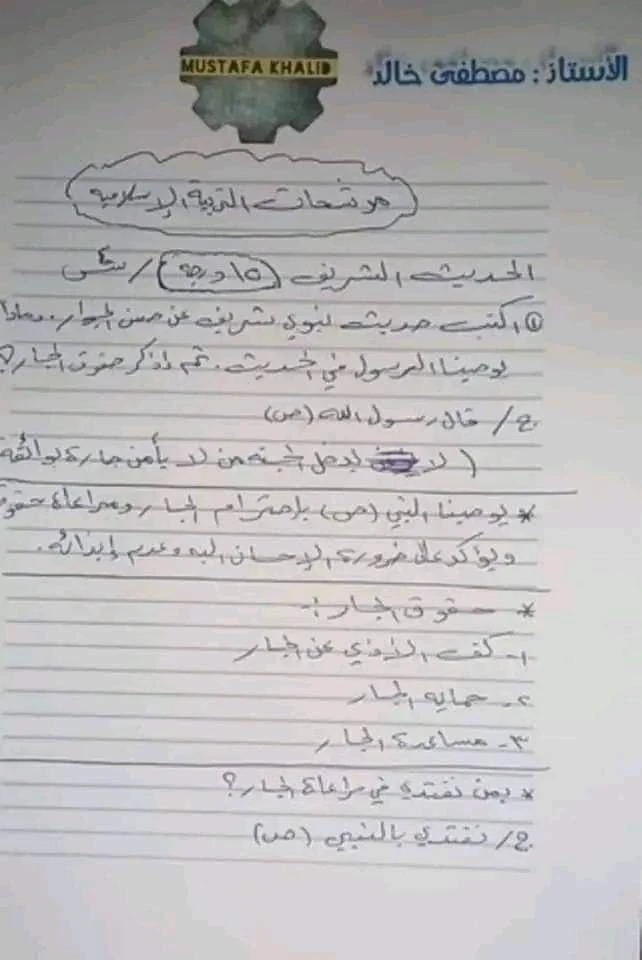 الأستاذ : مصطفى خالد
MUSTAFA KHALID
مرشحات التربية الإسلامية
الحديث الشريف (١٥ درجة) /
اكتب حديث نبوي شريف عن حسن الجوار. وماذا
يوصينا الرسول في الحديث. ثم اذكر حقوق الجار؟
ج/ قال رسول الله (ص)
(لا يدخل الجنة من لا يأمن جاره بوائقه
* يوصينا النبي (ص) بإحترام الجار ومراعاة حقوق
ويؤكد على ضرورة الإحسان اليه وعدم إيذائه.
* حقوق الجار :-
١- كف الاذى عن الجار
٢- حماية الجار
٣- مساعدة الجار
* بمن نقتدي في مراعاة الجار؟
ج/ نقتدي بالنبي (ص)